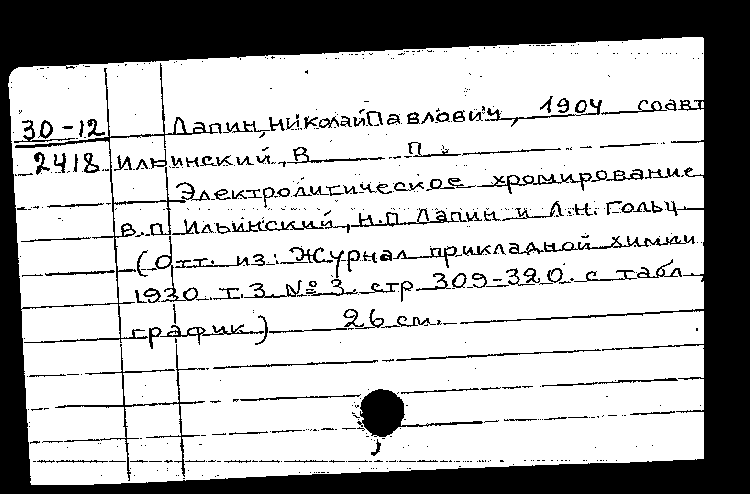 30-12 Лапин, Николай Павлович, 1904 соавт
2418 Ильинский, В П.
Электролитическое хромирование
В.П. Ильинский, Н.П Лапин и Л.Н. Гольц.
(Отт. из: Журнал прикладной химии
1930 т.3. № 3. стр 309-320. с табл.,
график.) 26 см.